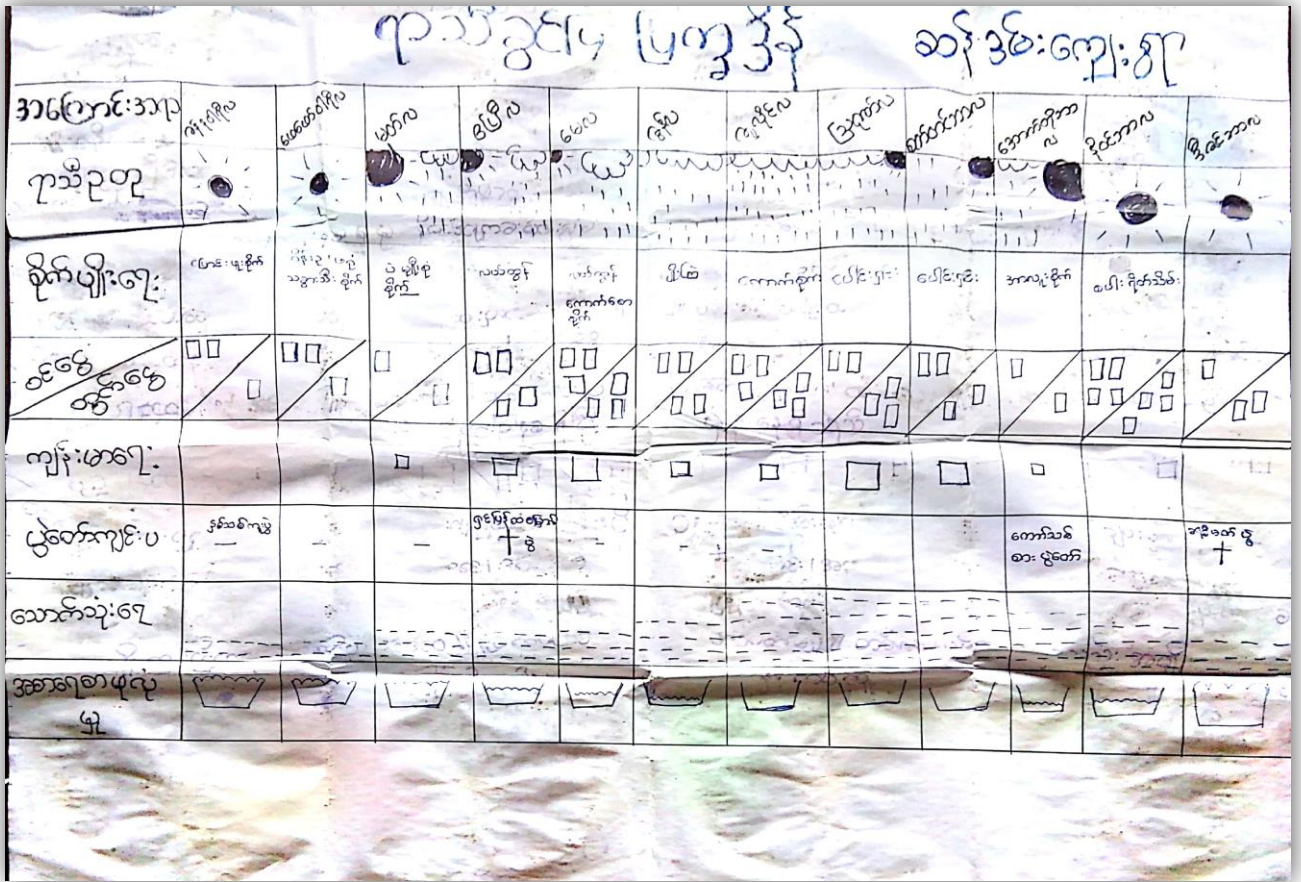 ရာသီခွင် ပြက္ခဒိန်
အကြောင်းအရာ
ဇန်နဝါရီလ
ဖေဖော်ဝါရီလ
မတ်လ
ဧပြီလ
မေလ
ဇွန်လ
ဇူလိုင်လ
ဩဂုတ်လ
စက်တင်ဘာလ
အောက်တိုဘာ
လ
နိုဝင်ဘာလ
ဒီဇင်ဘာလ
ရာသီဥတု
စိုက်ပျိုးရေး
ပြောင်းဖူးစိုက်
သခွားသီး စိုက်
စိုက်
လယ်ထွန်
လယ်ထွန်
ကောက်စိုက်
ပေါင်းရှင်း
ပေါင်းရှင်း
အာလူးစိုက်
စပါးရိတ်သိမ်း
ဝင်ငွေ
ထွက်ငွေ
ကျန်းမာရေး
ပွဲတော်ကျင်းပ
နှစ်သစ်ကူးပွဲ
ပွဲ
ကောက်သစ်
စား ပွဲတော်
ခရစ္စမတ် ပွဲ
သောက်သုံးရေ